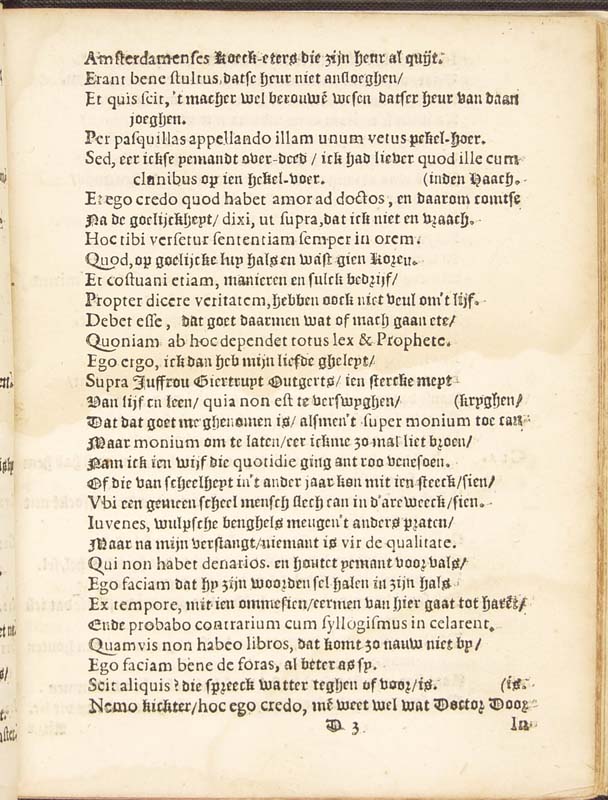 Amsterdamenses Koeck-eters die zijn heur al quijt.
Erant bene stultus, datse heur niet ansloeghen/
Et quis scit, 't macher wel berouwē wesen datser heur van daan
joeghen.
Per pasquillas appellando illam unum vetus pekel-hoer.
Sed, eer ickse yemandt over-deed / ick had liever quod ille cum
clunibus op ien hekel-voer. (inden Haach.
Et ego credo quod habet amor ad doctos, en daarom comtse
Na de goelijckheyt/ dixi, ut supra, dat ick niet en vraach.
Hoc tibi versetur sententiam semper in orem.
Quod, op goelijcke luy hals en wast gien Koren.
Et costuani etiam, manieren en sulck bedrijf/
Propter dicere veritatem, hebben oock niet veul om't lijf.
Debet esse, dat goet daarmen wat of mach gaan ete/
Quoniam ab hoc dependet totus lex & Prophete.
Ego ergo, ick dan heb mijn liefde gheleyt/
Supra Juffrou Giertruyt Outgerts/ ien stercke meyt
Van lijf en leen/ quia non est te verswyghen/ (kryghen/
Dat dat goet me ghenomen is/ alsmen't super monium toe can
Maar monium om te laten/eer ickme zo mal liet broen/
Nam ick ien wijf die quotidie ging ant roo venesoen.
Of die van scheelheyt in't ander jaar kon mit ien steeck/sien/
Vbi een gemeen scheel mensch slech can in d'are weeck/sien.
Iuvenes, wulpsche benghels meugen't anders praten/
Maar na mijn verstangt/niemant is vir de qualitate.
Qui non habet denarios. en houtet yemant voor vals/
Ego faciam dat hy zijn woorden sel halen in zijn hals
Ex tempore, mit ien ommesien/eermen van hier gaat tot
Ende probabo contrarium cum syllogismus in celarent.
Quamvis non habeo libros, dat komt zo nauw niet by/
Ego faciam bene de foras, al beter as sy.
Scit aliquis? die spreeck watter teghen of voor/is. (is.
Nemo kickter/hoc ego credo, mē weet wel wat Doctor Door
D 3 In